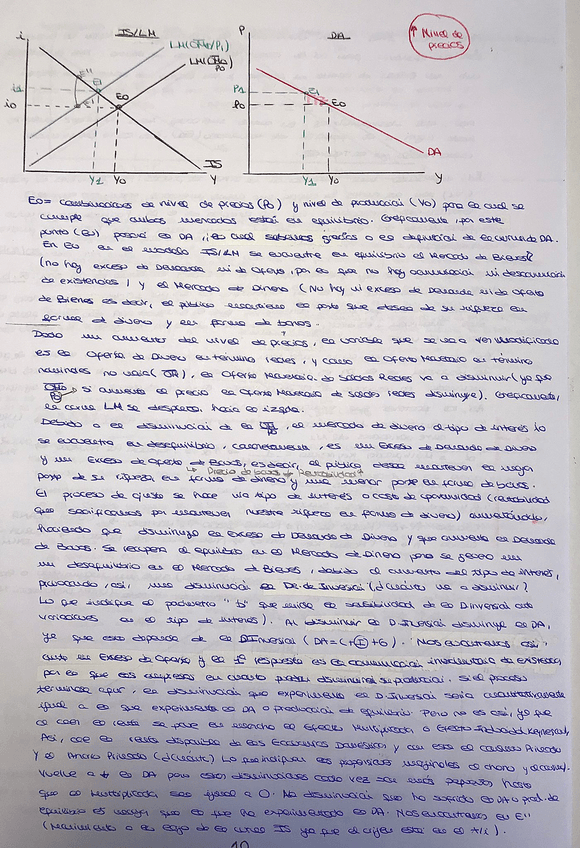 i
IS/LM
LM(M̄o/P1)
LM(M̄o/Po)
P
DA
↑ Nivel de precios
i1
io
E''
E1
E'
Eo
IS
Y1 Yo Y
P1
Po
E1
Eo
DA
Y1 Yo Y
Eo = combinaciones de nivel de precios (Po) y nivel de producción (Yo) para la cual se
cumple que ambos mercados están en equilibrio. Gráficamente, por este
punto (Eo) pasará la DA, la cual sabemos gracias a la definición de la curva de DA.
En Eo en el modelo IS/LM se encuentra en equilibrio el Mercado de Bienes
(no hay exceso de Demanda ni de Oferta, por lo que no hay acumulación ni desacumulación
de existencias) y el Mercado de Dinero (No hay ni exceso de Demanda ni de Oferta
de Bienes es decir, el público mantiene la parte que desea de su riqueza en
forma de dinero y en forma de bonos.
Dado un aumento del nivel de precios, la variable que se va a ver modificada
es la Oferta de Dinero en términos reales, y como la Oferta Monetaria en término
nominales no varía (OM), la Oferta Monetaria de Saldos Reales va a disminuir (ya que
si aumenta el precio la Oferta Monetaria de saldos reales disminuye). Gráficamente,
la curva LM se desplaza hacia la izqda.
Debido a la disminución de la OM/P, el mercado de dinero al tipo de interés io
se encuentra en desequilibrio, concretamente, es un Exceso de Demanda de Dinero
y un Exceso de Oferta de Bonos, es decir, el público desea mantener la mayor
parte de su riqueza en forma de dinero y una menor parte en forma de bonos.
El proceso de ajuste se hace vía tipo de interés o coste de oportunidad (rentabilidad
que sacrificamos por mantener nuestra riqueza en forma de dinero) aumentándolo,
haciendo que disminuya el exceso de Demanda de Dinero y que aumente la Demanda
de Bonos. Se recupera el equilibrio en el Mercado de Dinero pero se genera un
un desequilibrio en el Mercado de Bienes, debido al aumento del tipo de interés,
provocando, así, una disminución la De. de Inversión (¿Cuánto va a disminuir?
Lo que indique el parámetro "b" que mide la sensibilidad de la D.inversión ante
variaciones en el tipo de interés). Al disminuir la D.Inversión disminuye la DA,
ya que esta depende de la D.Inversión (DA=C+I+G). Nos encontramos así
ante un Exceso de Oferta y la 1ª respuesta es la acumulación involuntaria de existencias,
por lo que las empresas en cuanto puedan disminuirán su producción. Si el proceso
terminase aquí, la disminución que experimenta la D.Inversión sería cuantitativamente
igual a la que experimenta la DA o producción de equilibrio. Pero no es así, ya que
al caer la renta se pone en marcha el Efecto Multiplicador o Efecto
Así, cae la renta disponible de las Economías Domésticas y con esta el consumo Privado
y el Ahorro Privado (¿Cuánto? Lo que indiquen las propensiones marginales al ahorro y al consumo).
Vuelve a ↓ la DA pero estas disminuciones cada vez son más pequeñas, hasta
que el Multiplicador sea igual a 0. La disminución que ha sufrido la DA o prod. de
equilibrio es mayor que la que ha experimentado la DA. Nos encontramos en E''
(Movimiento a lo largo de la curva IS ya que el origen está en el ↑i).
10